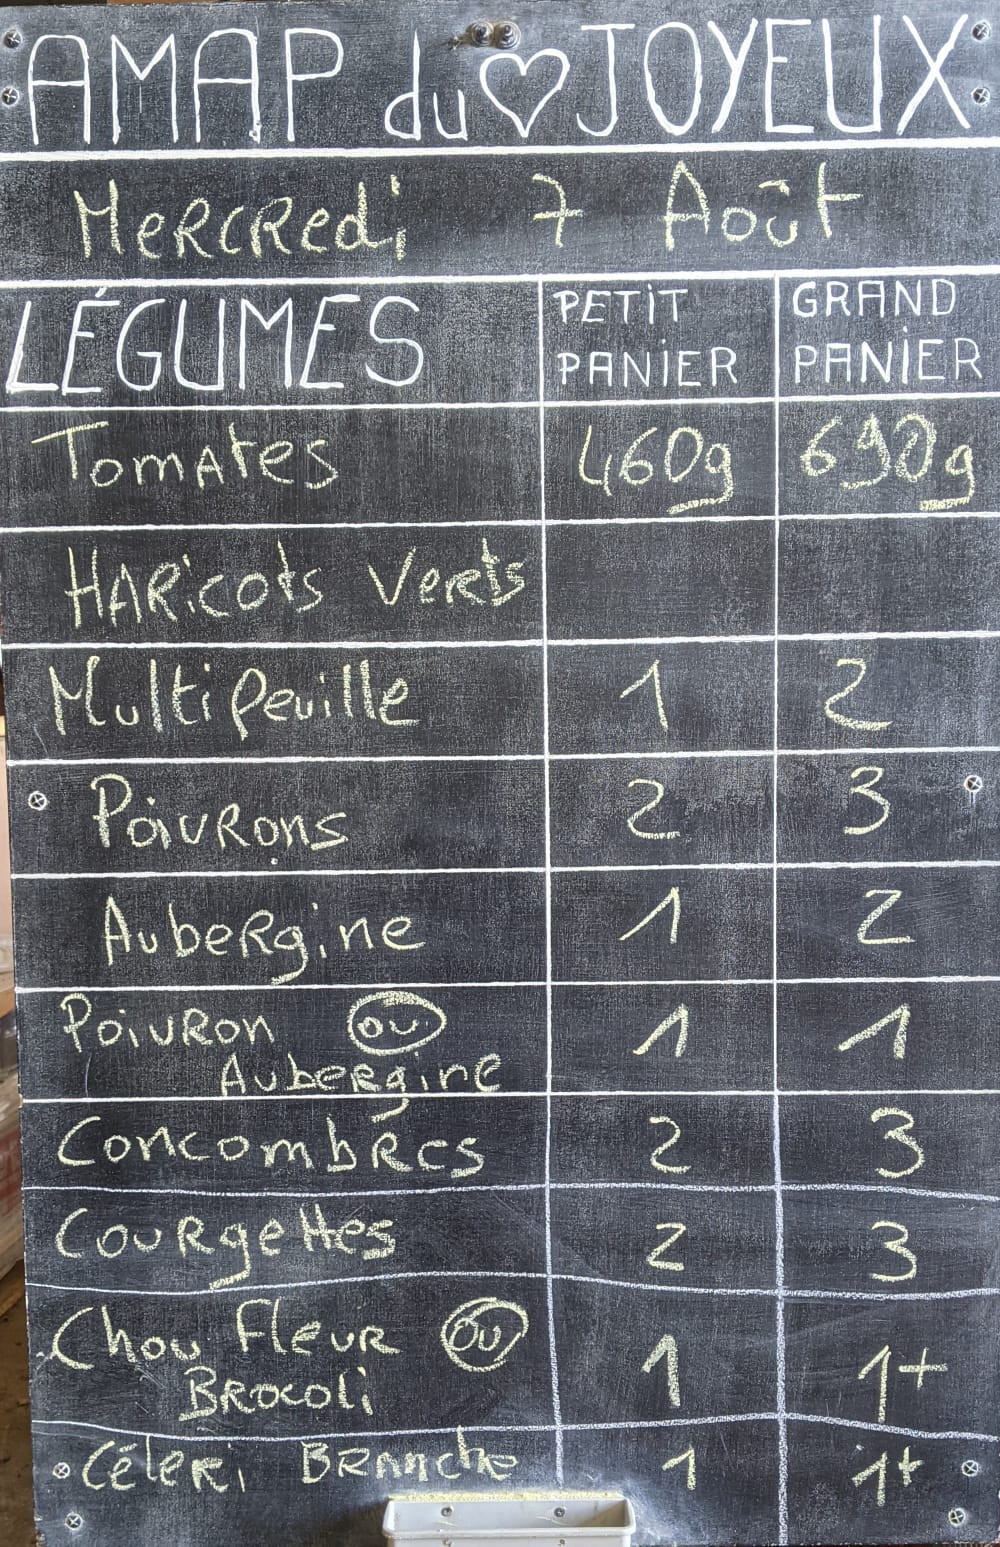 AMAP du ♡ JOYEUX
Mercredi 7 Août
LÉGUMES PETIT PANIER GRAND PANIER
Tomates 460g 690g
Haricots Verts
Multifeuille 1 2
Poivrons 2 3
Aubergine 1 2
Poivron ou 1 1
Aubergine
Concombres 2 3
Courgettes 2 3
Chou Fleur ou 1 1+
Brocoli
Céleri Branche 1 1+